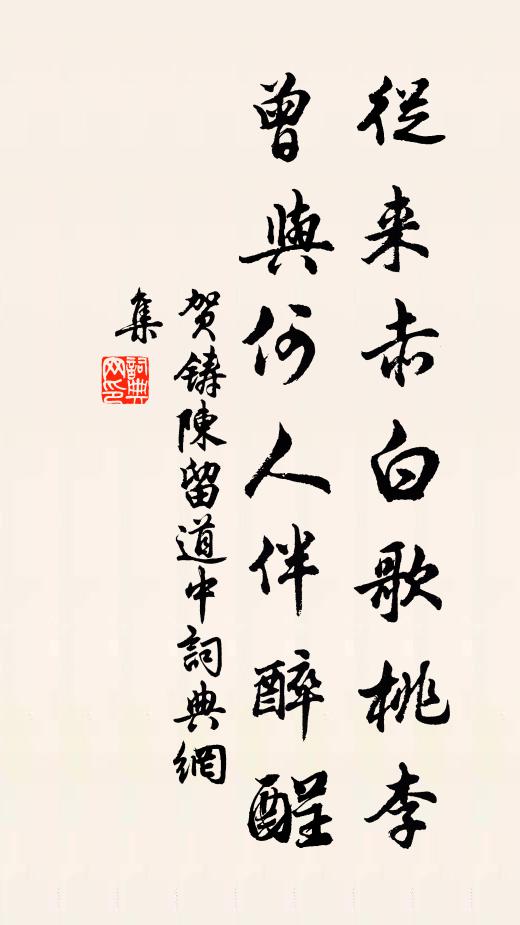 從来赤白歌桃李
曾與何人伴醉醒
贺鑄陳留道中詞典網
集
詞典
网印